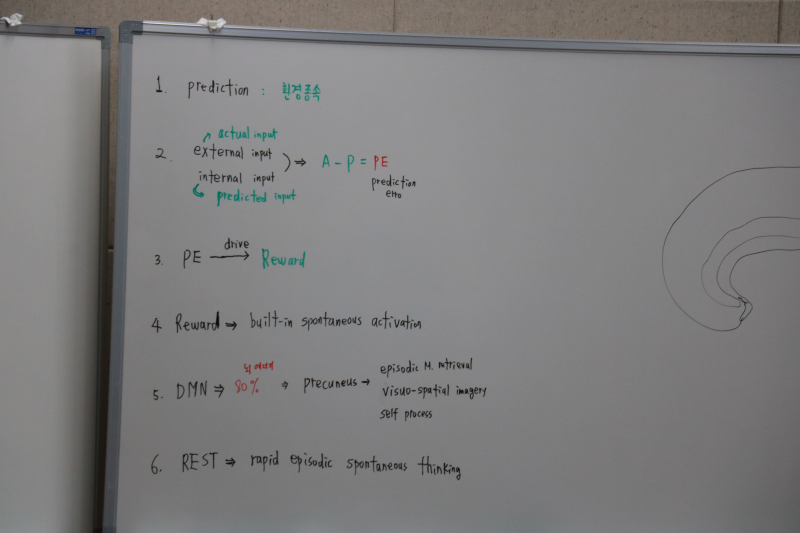 1. prediction : 환경종속
actual input
2. external input
internal input
⇒ A - P = PE
predicted input
prediction
erro
3. PE → Reward
drive
4. Reward ⇒ built-in spontaneous activation
뇌 에너지
5. DMN ⇒ 80% ⇒ precuneus →
episodic M. retrieval
visuo-spatial imagery
self process
6. REST ⇒ rapid episodic spontaneous thinking